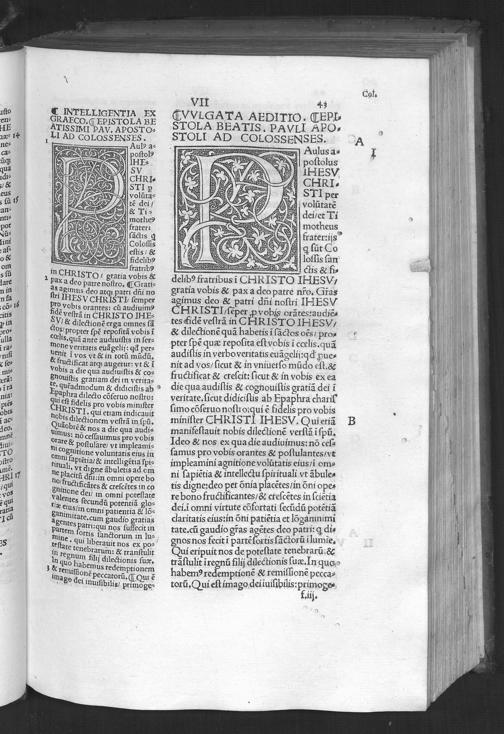 Col.
VII
43
¶ INTELLIGENTIA EX
GRAECO. ¶ EPISTOLA BE
ATISSIMI PAV. APOSTO-
LI AD COLOSSENSES.
PAulꝰ a-
postolꝰ
IHE-
SV
CHRI-
STI p
volūta-
tē dei/
& Ti-
motheꝰ
frater:
sāctis q
Colossis
estis/ &
fidelibꝰ
fratribꝰ
in CHRISTO/ gratia vobis &
pax a deo patre nostro. ¶ Grati-
as agimus deo atq; patri dñi no
stri IHESV CHRISTI/ semper
pro vobis orantes: cū audiuimꝰ
fidē vestrā in CHRISTO IHE-
SV/ & dilectionē erga omnes sā
ctos: propter spē repositā vobis ī
cœlis, quā ante audiuistis in ser-
mone veritatis euāgelij: qd̄ per-
uenit ī vos vt & in totū mūdū,
& fructificat atq; augetur: vt & ī
vobis a die qua audiuistis & co-
gnouistis gratiam dei in verita-
te, quēadmodum & didicistis ab
Epaphra dilecto cōseruo nostro:
qui est fidelis pro vobis minister
CHRISTI, qui etiam indicauit
nobis dilectionem vestrā in spū.
Quāobrē & nos a die qua audi-
uimus: nō cessauimus pro vobis
orare & postulare/ vt impleami-
ni cognitione voluntatis eius in
omni sapiētia/ & intelligētia spi-
rituali, vt digne ābuletis ad om
ne placitū dñi: in omni opere bo
no fructificātes/ & crescētes in co
gnitione dei/ in omni potestate
valentes secundū potentiā glo-
riæ eius/ in omni patientia & lō-
ganimitate. cum gaudio gratias
agentes patri: qui nos suffecit in
partem sortis sanctorum in lu-
mine. qui liberauit nos ex po-
testate tenebrarum: & transtulit
in regnum filij dilectionis suæ.
In quo habemus redemptionem
& remissionē peccatorū. ¶ Qui ē
imago dei inuisibilis/ primoge-
¶ VVLGATA AEDITIO. ¶ EPI-
STOLA BEATIS. PAVLI APO-
STOLI AD COLOSSENSES.
A
PAulus a-
postolus
IHESV
CHRI-
STI per
volūtatē
dei/ et Ti
motheus
frater: ijs
q sūt Co
lossis san
ctis & fi-
delibꝰ fratribus ī CHRISTO IHESV/
gratia vobis & pax a deo pr̄e nr̄o. Gr̄as
agimus deo & patri dñi nostri IHESV
CHRISTI/ sēper p vobis orātes: audiē-
tes fidē vestrā in CHRISTO IHESV/
& dilectionē quā habetis ī sāctos oēs: pro-
pter spē quæ reposita est vobis ī cœlis. quā
audistis in verbo veritatis euāgelij: qd̄ ꝑue-
nit ad vos/ sicut & in vniuerso mūdo est, &
fructificat & crescit: sicut & in vobis ex ea
die qua audistis & cognouistis gratiā dei ī
veritate. sicut didicistis ab Epaphra charis
simo cōseruo nostro: qui ē fidelis pro vobis
minister CHRISTI IHESV. Qui etiā
B
manifestauit nobis dilectionē vestrā ī spū.
Ideo & nos ex qua die audiuimus: nō ces-
samus pro vobis orantes & postulantes/ vt
impleamini agnitione volūtatis eius/ ī om-
ni sapiētia & intellectu spirituali vt ābule-
tis digne: deo per omnia placētes/ in ōni ope-
re bono fructificantes/ & crescētes in scietia
dei. ī omni virtute cōfortati secūdū potētiā
claritatis eius/ in ōni patiētia et lōganimi
tate. cū gaudio gr̄as agētes deo patri: q di-
gnos nos fecit ī partē sortis sāctorū ī lumie.
Qui eripuit nos de potestate tenebrarū: &
trāstulit ī regnū filij dilectionis suæ. In quo
habemꝰ redemptionē & remissionē pecca-
torū. Qui est imago dei īuisibilis: primoge-
f.iij.